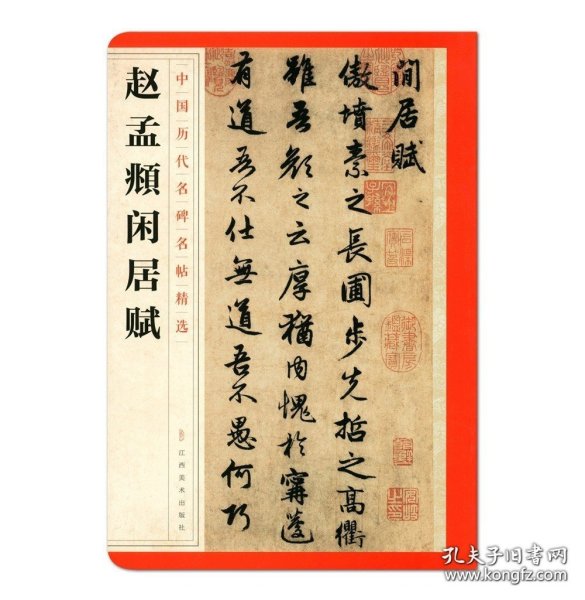 閒居賦
傲墳素之長圃步先哲之高衢
雖吾顏之云厚猶内愧於甯蘧
有道吾不仕無道吾不愚何巧
中国历代名碑名帖精选
赵孟頫闲居赋
江西美术出版社
孔夫子旧书网
kongfz.com